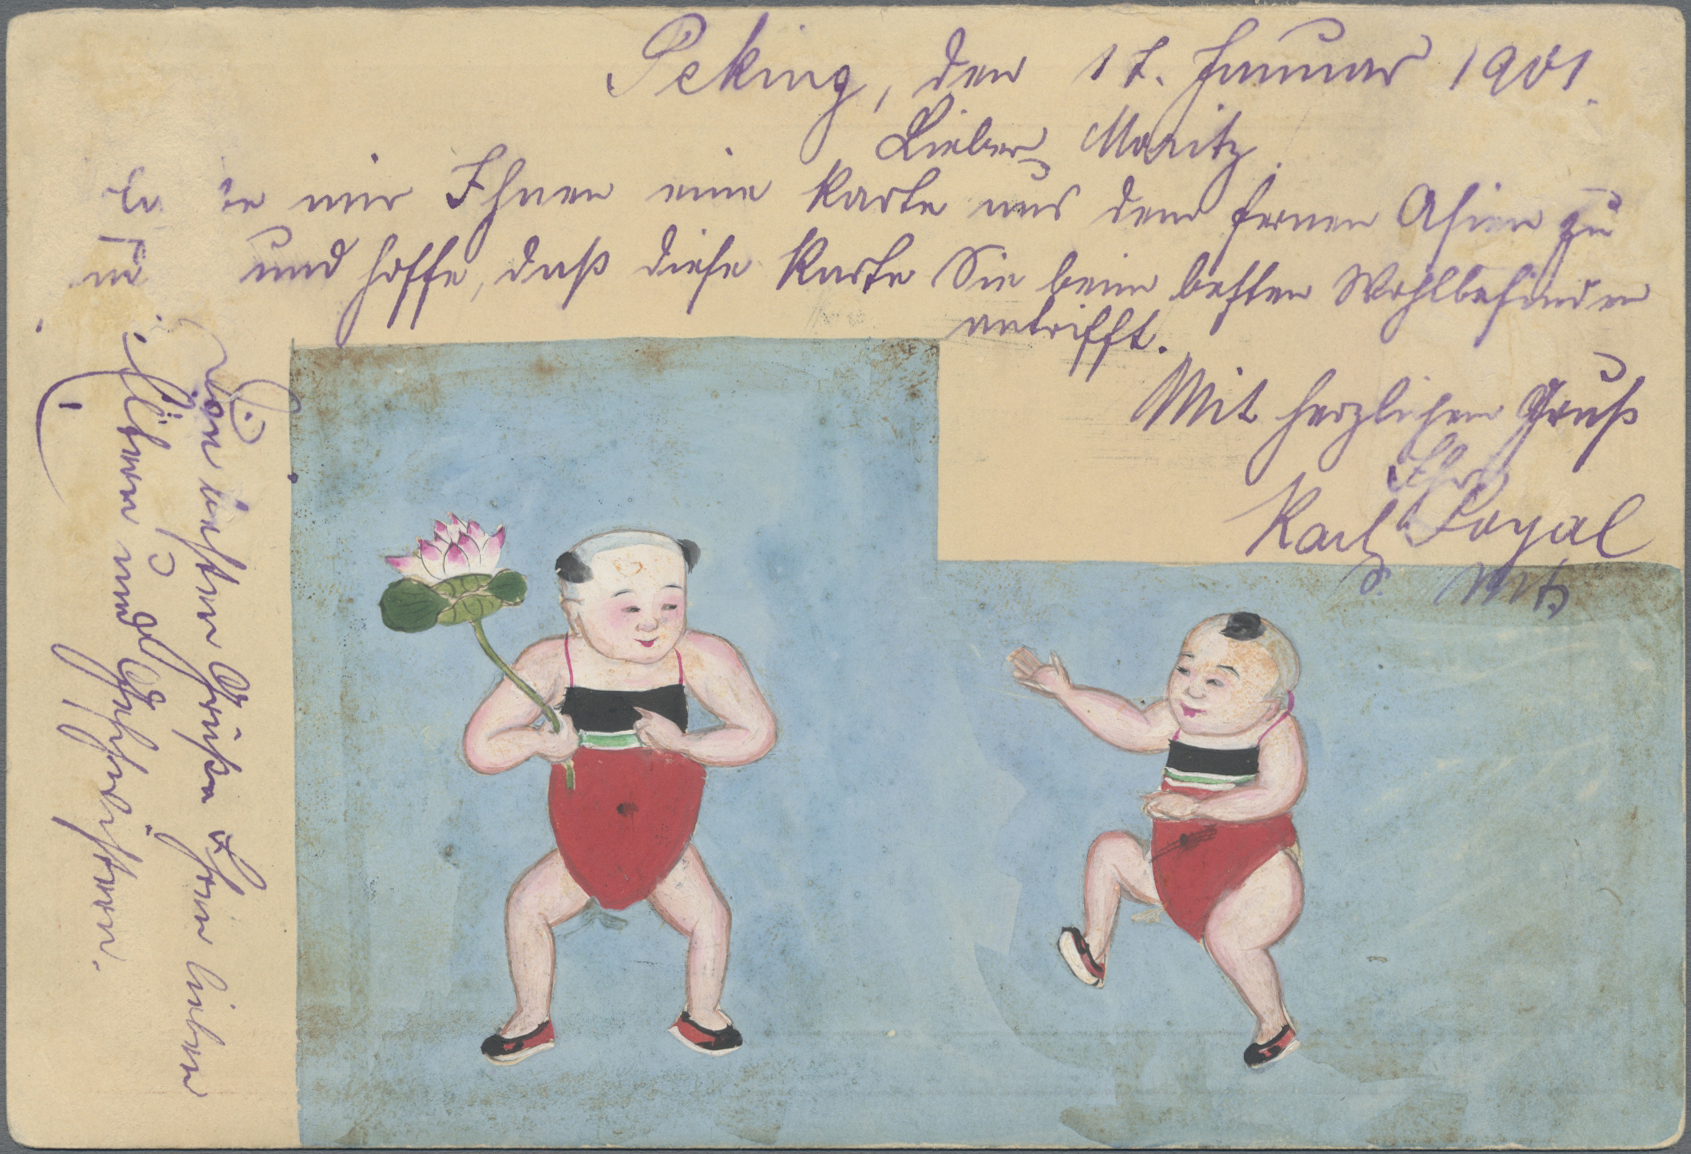 Peking, den 17. Januar 1901.
Lieber Moritz!
mir Ihnen eine Karte aus dem fernen Asien zu
und hoffe, daß diese Karte Sie beim besten Wohlbefinden
antrifft.
Mit herzlichem Gruß
Ihr
Karl Loyal
Die besten Grüße Ihren lieben
Eltern und Geschwistern.